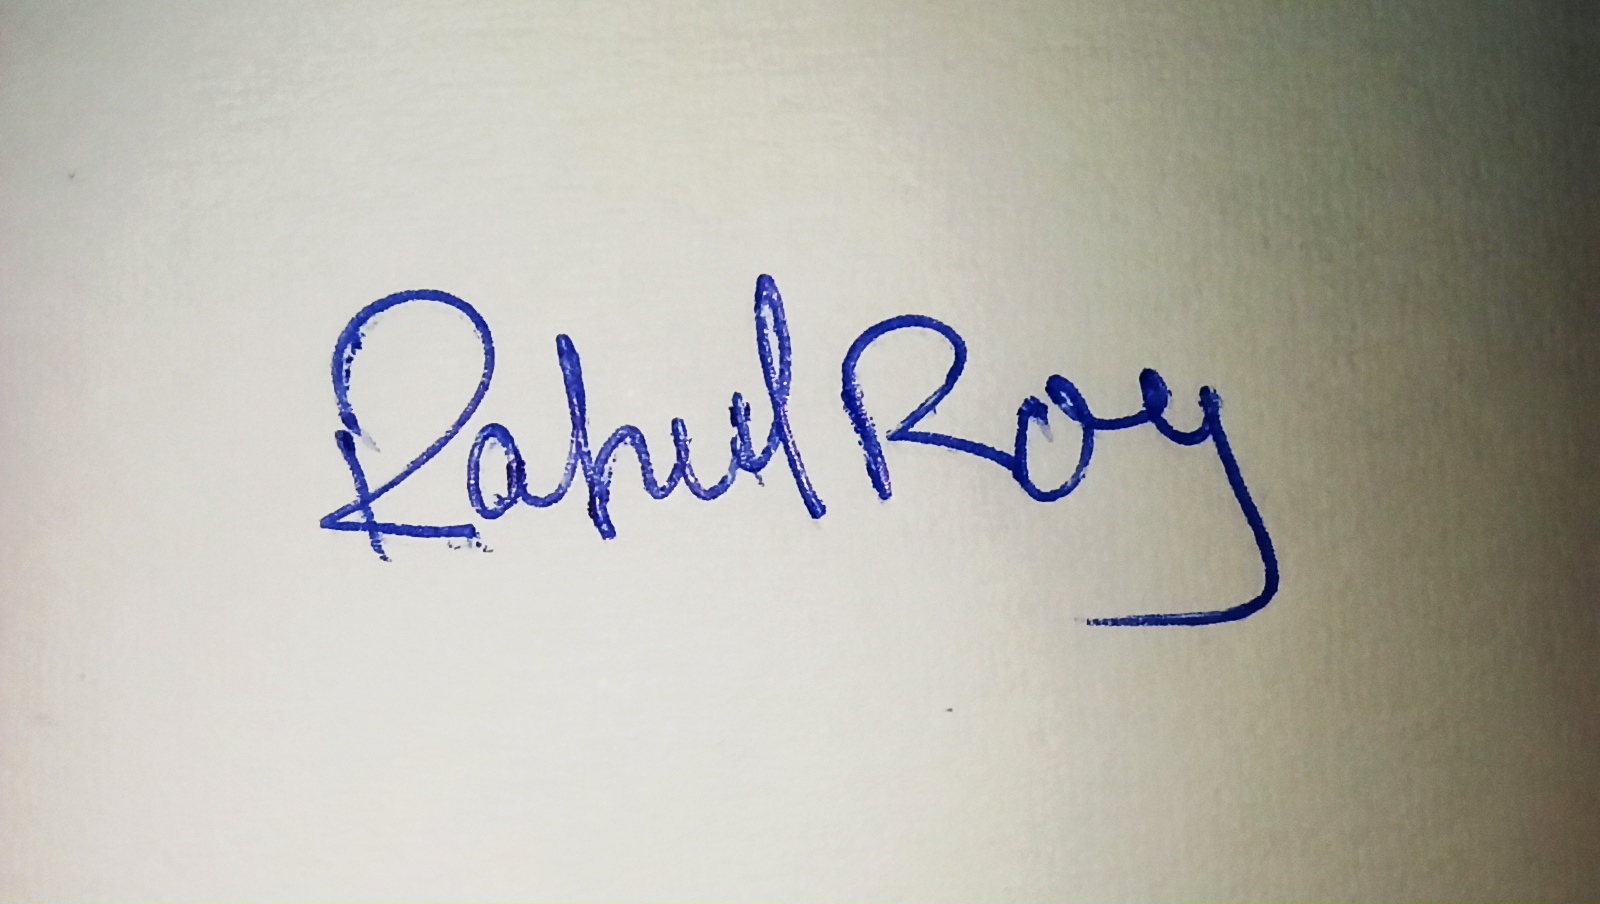 Rahul Roy